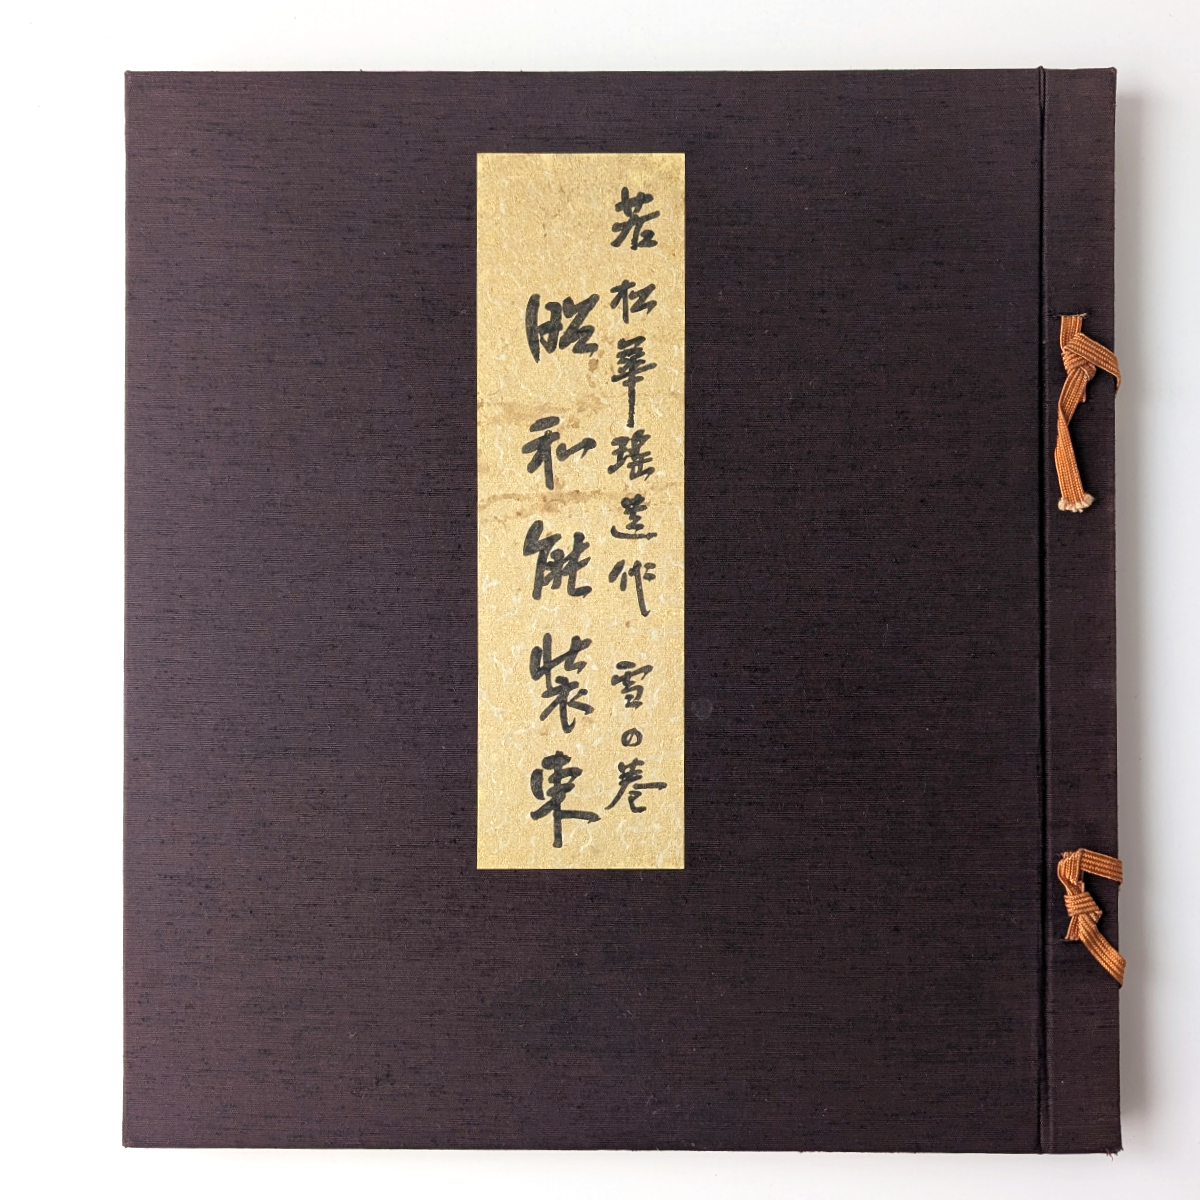 若松華瑶造作 雪の巻
昭和能装束